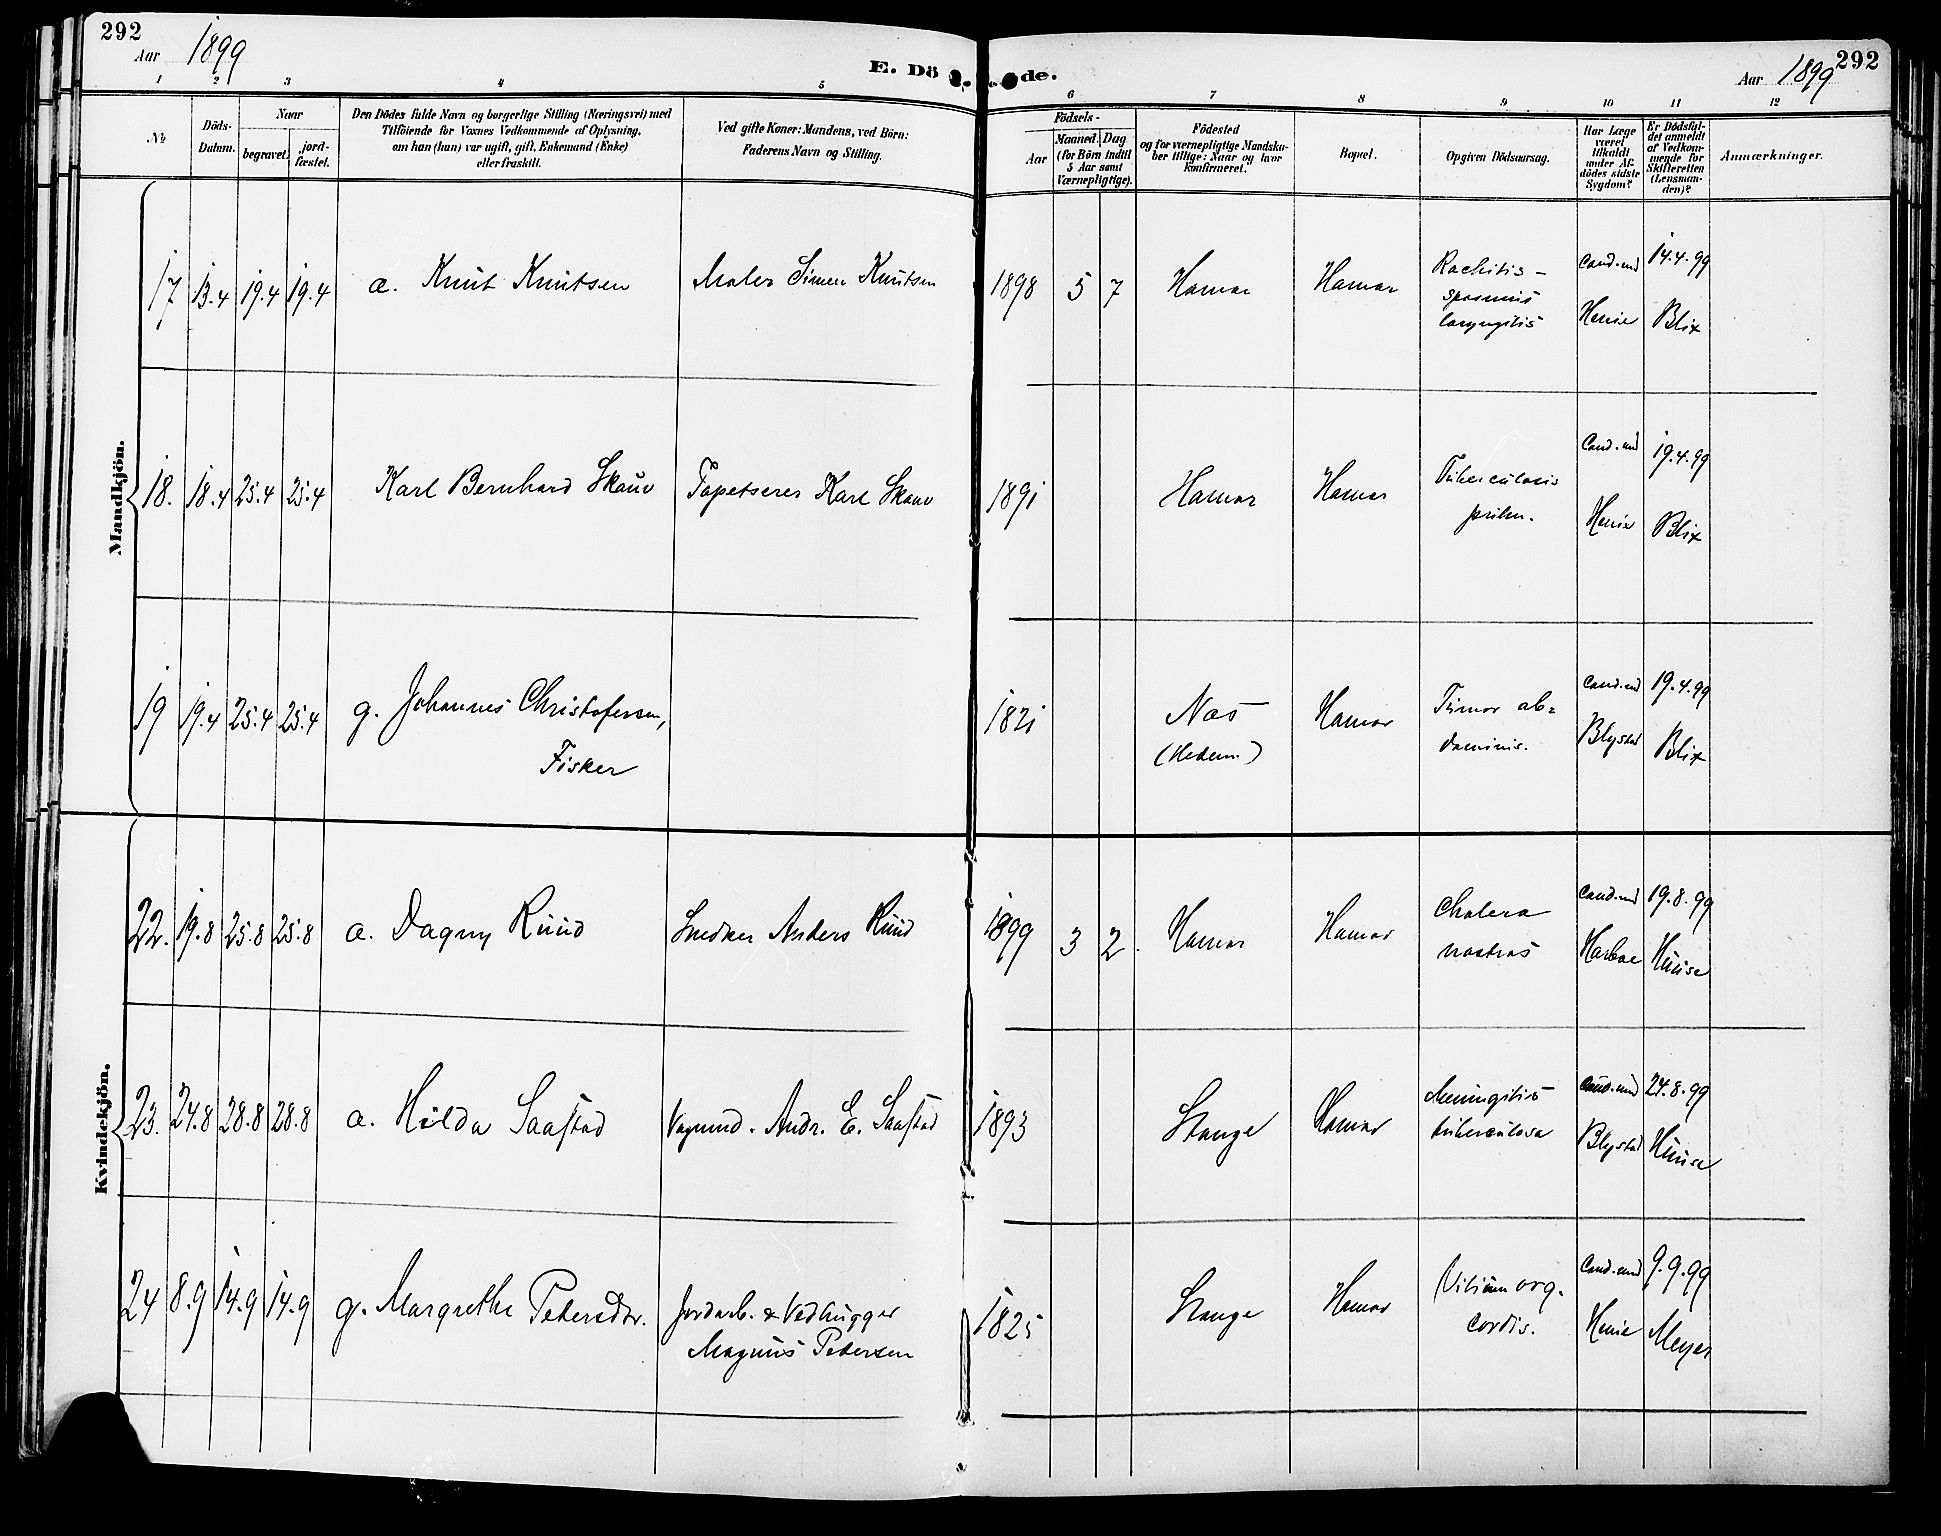 292
Aar 1899
E. Dö de.
Aar 1899
292
1 2 3 4 5 6 7 8 9 10 11 12
No
Döds-
Datum.
Naar
begravet.
jord-
fæstet.
Den Dödes fulde Navn og borgerlige Stilling (Næringsvei) med
Tilföiende for Voxnes Vedkommende af Oplysning,
om han (hun) var ugift, gift, Enkemand (Enke)
eller fraskilt.
Ved gifte Koner: Mandens, ved Börn:
Faderens Navn og Stilling.
Födsels-
Aar
Maaned.
Dag
(for Börn indtil
5 Aar samt
Værnepligtige).
Födested
og for værnepligtige Mandska-
ber tillige: Naar og hvor
konfirmeret.
Bopæl.
Opgiven Dödsaarsag.
Har Læge
været
tilkaldt
under Af-
dödes sidste
Sygdom?
Er Dödsfal-
det anmeldt
af Vedkom-
mende for
Skifteretten
(Lensman-
den)?
Anmærkninger.
Mandkjön.
17 13.4 19.4 19.4 a. Knut Knutsen Maler Simen Knutsen 1898 5 7 Hamar Hamar Rachitis -
spasmus
laryngitis
Cand. md
Henie
14.4.99
Blix
18. 18.4 25.4 25.4 Karl Bernhard Skauv Tapetserer Karl Skauv 1891 Hamar Hamar Tuberculosis
pulm.
Cand. md
Henie
19.4.99
Blix
19 19.4 25.4 25.4 g. Johannes Christofersen,
Fisker
1821 Næs
(Hedem.)
Hamar Tumor ab=
dominis.
Cand. md
Blystad
19.4.99
Blix
Kvindekjön.
22. 19.8 25.8 25.8 a. Dagny Ruud Snedker Anders Ruud 1899 3 2 Hamar Hamar Cholera
nostras
Cand. md
Harboe
19.8.99
Huuse
23. 24.8 28.8 28.8 a. Hilda Saastad Vognmd. Andr. E. Saastad 1893 Stange Hamar Meningitis
tuberculosa
Cand. md
Blystad
24.8.99
Huuse
24 8.9 14.9 14.9 g. Margrethe Petersdtr. Jordarb. & Vedhugger
Magnus Petersen
1825 Stange Hamar Vitium org.
cordis.
Cand. md
Henie
9.9.99
Meyer